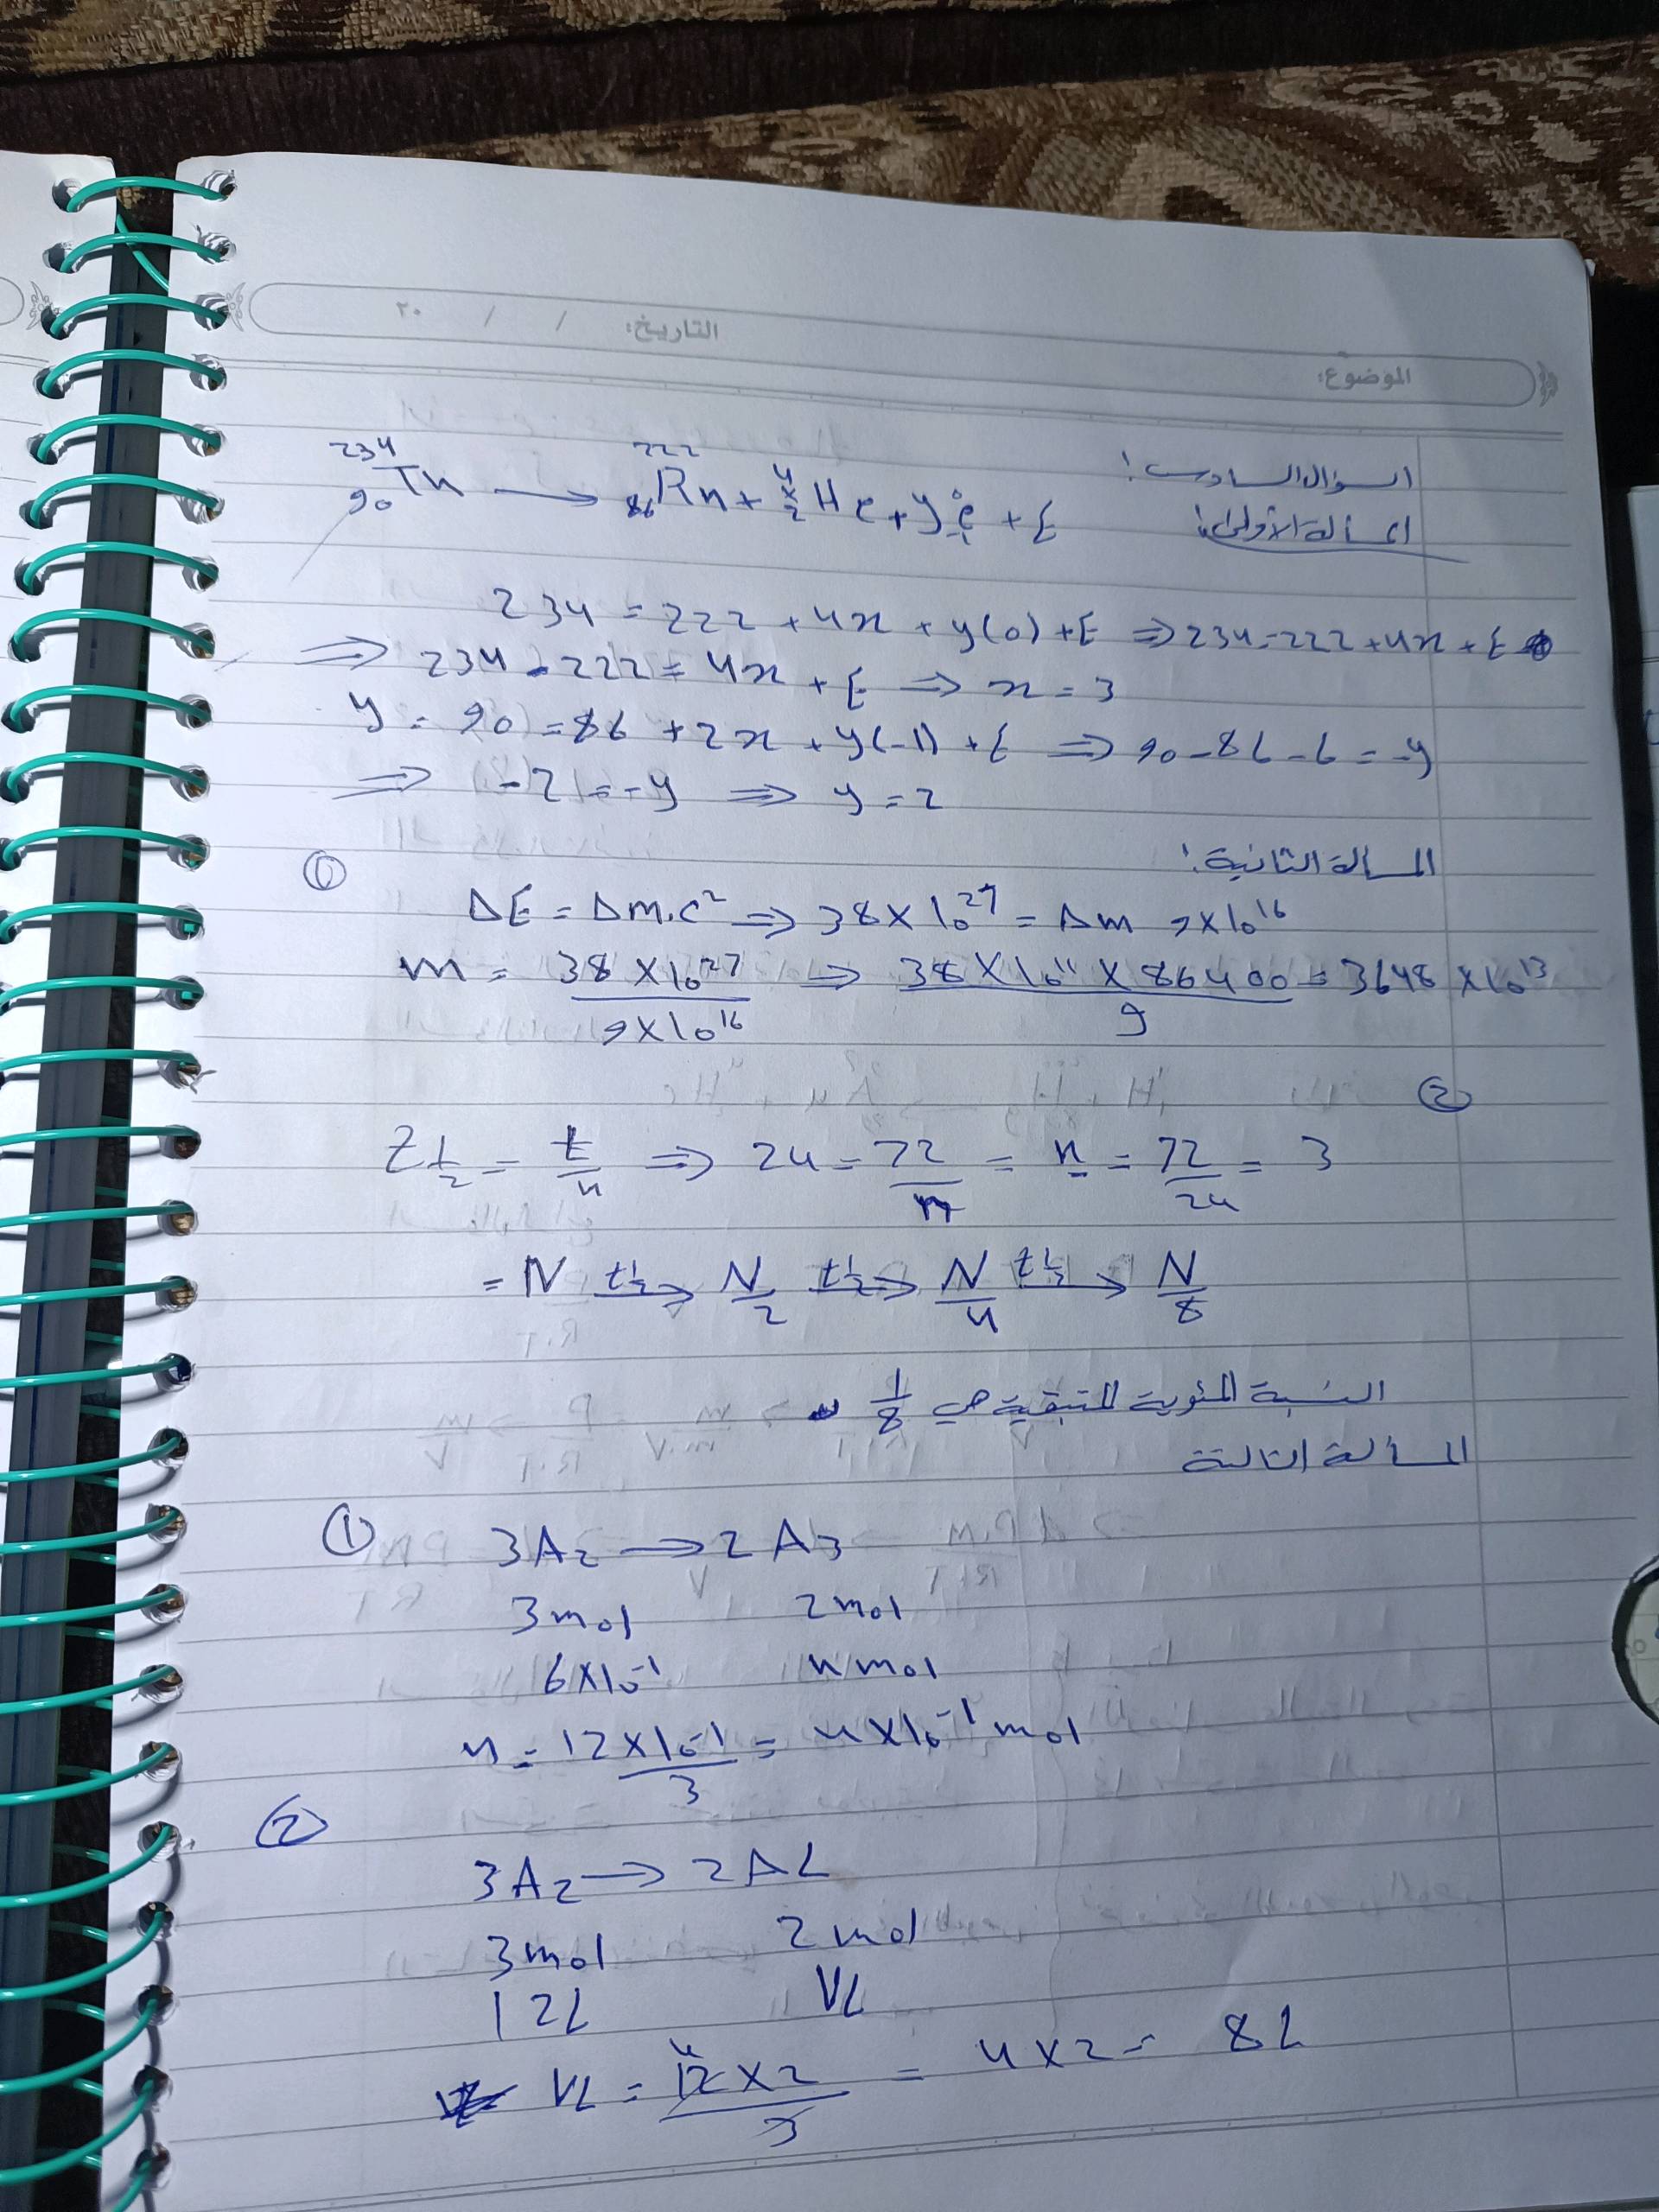 التاريخ: / / ٢٠
الموضوع:
السؤال السادس:
المسألة الأولى:
²³⁴₉₀Th → ²²²₈₆Rn + x ⁴₂He + y ⁰₋₁e + E
234 = 222 + 4x + y(0) + E ⇒ 234 = 222 + 4x + E
⇒ 234 - 222 = 4x + E ⇒ x = 3
y = 90 = 86 + 2x + y(-1) + E ⇒ 90 - 86 - 6 = -y
⇒ -2 = -y ⇒ y = 2
المسألة الثانية:
①
ΔE = Δm.c² ⇒ 38 × 10²⁷ = Δm 9 × 10¹⁶
m = 38 × 10²⁷ / 9 × 10¹⁶ ⇒ 38 × 10¹¹ × 86400 / 9 = 3648 × 10¹³
②
t½ = t/n ⇒ 24 = 72/n = n = 72/24 = 3
= N t½→ N/2 t½→ N/4 t½→ N/8
النسبة المئوية المتبقية هي 1/8
المسألة الثالثة
① 3A₂ → 2A₃
3mol 2mol
6×10⁻¹ n mol
n = 12×10⁻¹ / 3 = 4×10⁻¹ mol
②
3A₂ → 2AL
3mol 2mol
12L VL
VL = 12 × 2 / 3 = 4 × 2 = 8L